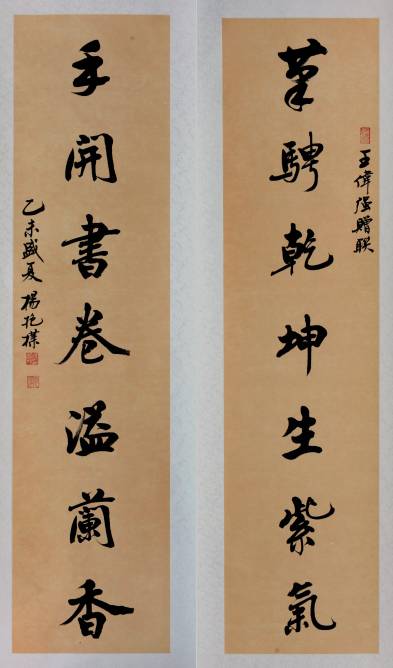 筆騁乾坤生紫氣
王偉强贈联
手開書卷溢蘭香
乙未盛夏 楊抱樸